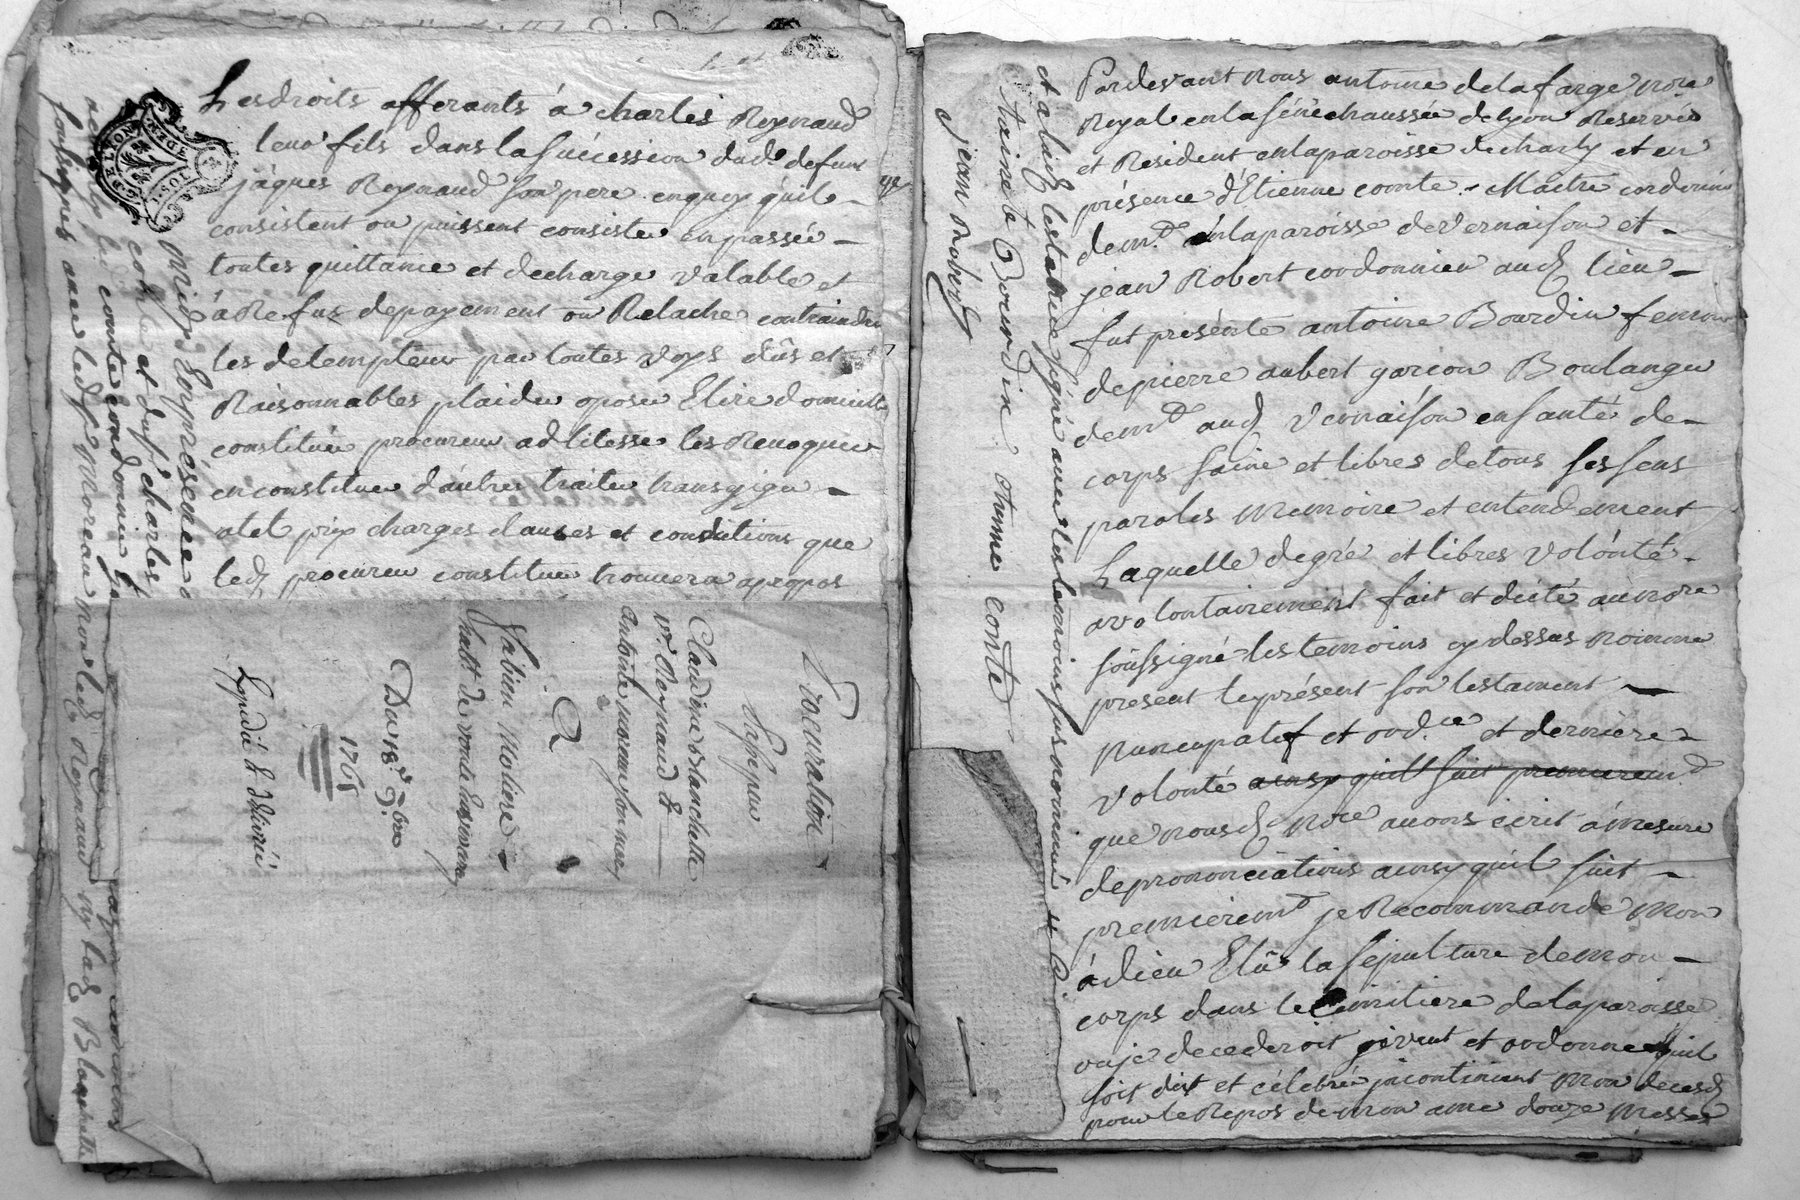 Les droits afferants á charles Reynaud
leur fils dans la succession dud. defunt
jáques Reynaud son pere enquoy quil
consistent ou puissent consister en passer
toutes quittance et decharge valable et
á Refus depayement ou Relache contraindre
les detempteur par toutes voys dûs et
Raisonnables plaider oposer Elire domicille
constituer procureur ad litesse les Revoquer
en constituer d'autres traiter transgiger
atel prix charges clauses et conditions que
led procureur constitue trouvera apropos
Procuration
Claudine Blanchette
ve. Reynaud &
antoine moreau son mary
A
fabien Moliere
Du 18e. 9bre
1765
Expedié & délivré
en présence
conte et dusr. charles
conte cordonnier
soussignés avec ledsr. Moreau non led. Reynaud ny lad. Blanchette
Pardevant nous antoine delafarge nore
Royal en la sénéchaussée de lyon Reservée
et Resident enlaparoisse de charly et en
présence d'Etienne comte Maitre cordonnier
demt. enlaparoisse de vernaison et
jean Robert cordonnier aud lieu
fut présente antoine Bourdin femme
depierre aubert garcon Boulanger
demt. aud vernaison en santé de
corps saine et libres detous ses sens
paroles memoire et entendement
Laquelle degré et libres volónté
avolontairement fait et dicté aunore
soussigné les temoins cy dessus nommé
present leprésent son testament
nuncupatif et ord.re et derniére
volonté ainsy quil suit premierement
que nousd nore avons écrit á mesure
deprononciations ainsy quil suit
premieremt je Recommande mon
á dieu Elû la sépulture demon
corps dans le Cimitiere delaparoisse
ouje decederoit et ordonne quil
soit dist et célebré incontinent mon deces
pour le Repos de mon ame douze messes
et a lad. testatrice signé avec les temoins sus nommé
antoinete Bourdin etienne conte
jean Robert